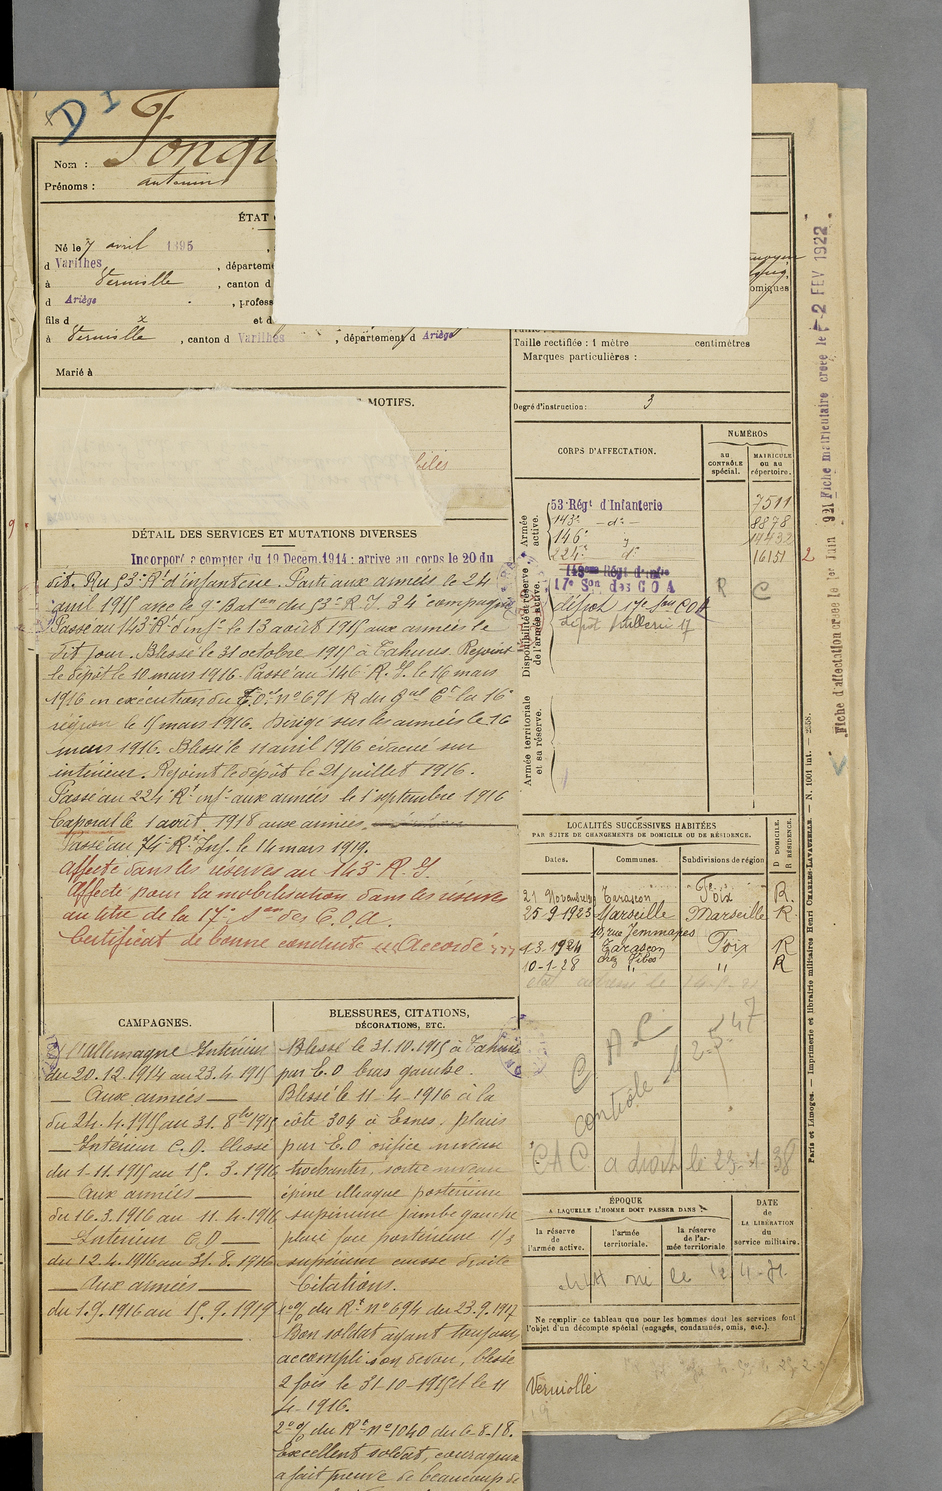 D I
Nom :
Prénoms : antonin
ÉTAT
Né le 7 avril 1895
d Varilhes , départeme
à Verniolle , canton d
d Ariège , profess
fils d x et d
à Verniolle , canton d Varilhes , département d Ariège
Marié à
MOTIFS.
DÉTAIL DES SERVICES ET MUTATIONS DIVERSES
Incorporé a compter du 19 Decem. 1914 : arrive au corps le 20 du
dit. Au 53e Rt d'infanterie. Parti aux armées le 24
avril 1915 avec le 9e Baton du 53e R.I. 34e compagnie
Passé au 143e Rt d'infie le 13 août 1915 aux armées le
dit jour. Blessé le 31 octobre 1915 à Tahure. Rejoint
le dépôt le 10 mars 1916. Passé au 146e R.I. le 16 mars
1916 en exécution du T.O. no 691 R du Gal Ct la 16e
région le 15 mars 1916. Dirigé sur les armées le 16
mars 1916. Blessé le 11 avril 1916 évacué sur
intérieur. Rejoint le dépôt le 21 juillet 1916.
Passé au 224e Rt inf. aux armées le 1er septembre 1916
Caporal le 1 août 1918 aux armées.
Passé au 74e Rt Inf. le 14 mars 1919.
Affecté dans les réserves au 143e R.I.
Affecté pour la mobilisation dans les réserves
au titre de la 17e Son des C.O.A.
Certificat de bonne conduite "Accordé"
CAMPAGNES.
C/ l'Allemagne Intérieur
du 20.12.1914 au 23.4.1915
— Aux armées —
du 24.4.1915 au 31.8bre 1915
— Intérieur C.D. blessé
du 1.11.1915 au 15.3.1916
— Aux armées —
du 16.3.1916 au 11.4.1916
— Intérieur C.D —
du 12.4.1916 au 31.8.1916
— Aux armées —
du 1.9.1916 au 15.9.1919
BLESSURES, CITATIONS,
DÉCORATIONS, ETC.
Blessé le 31.10.1915 à Tahure
par E.O bras gauche.
Blessé le 11-4-1916 à la
côte 304 à Esnes, plaies
par E.O orifice niveau
trochanter, sortie niveau
épine iliaque postérieure
supérieure jambe gauche
plaie face postérieure 1/3
supérieur cuisse droite
Citations.
1o O/ du Rt no 694 du 23.9.1917
Bon soldat ayant toujours
accompli son devoir, blessé
2 fois le 31-10-1915 et le 11
4-1916.
2o O/ du Rt no 1040 du 6-8-18.
Excellent soldat, courageux
a fait preuve de beaucoup de
Taille rectifiée : 1 mètre centimètres
Marques particulières :
Degré d'instruction : 3
CORPS D'AFFECTATION.
NUMÉROS
AU CONTRÔLE spécial.
MATRICULE ou au répertoire.
Armée active.
53e Régt d'Infanterie 7511
143e — do — 8878
146e 14432
224e do 16151
Disponibilité et réserve de l'armée active.
143ème Régt d'infie
17e Son des C O A R C
dépôt 17e Son COA
Dépôt Artillerie 17
Armée territoriale et sa réserve.
LOCALITÉS SUCCESSIVES HABITÉES
PAR SUITE DE CHANGEMENTS DE DOMICILE OU DE RÉSIDENCE.
Dates. Communes. Subdivisions de région D DOMICILE. R RÉSIDENCE.
21 Novembre Tarascon Foix R.
25-9-1923 Marseille Marseille R
10, rue Jemmapes
1-3-1924 Tarascon Foix R
10-1-28 " " R
C A C
contrôle le 2-5-47
CAC a droit le 23-1-38
ÉPOQUE
A LAQUELLE L'HOMME DOIT PASSER DANS
la réserve de l'armée active.
l'armée territoriale.
la réserve de l'armée territoriale
DATE DE LA LIBÉRATION du service militaire.
Ne remplir ce tableau que pour les hommes dont les services font
l'objet d'un décompte spécial (engagés, condamnés, omis, etc.).
Verniolle
Fiche matriculaire créée le 2 FEV 1922.
Fiche d'affectation créée le 1er Juin 921
Paris et Limoges. — Imprimerie et librairie militaires Henri CHARLES-LAVAUZELLE. — N. 1001 int. — 2558.